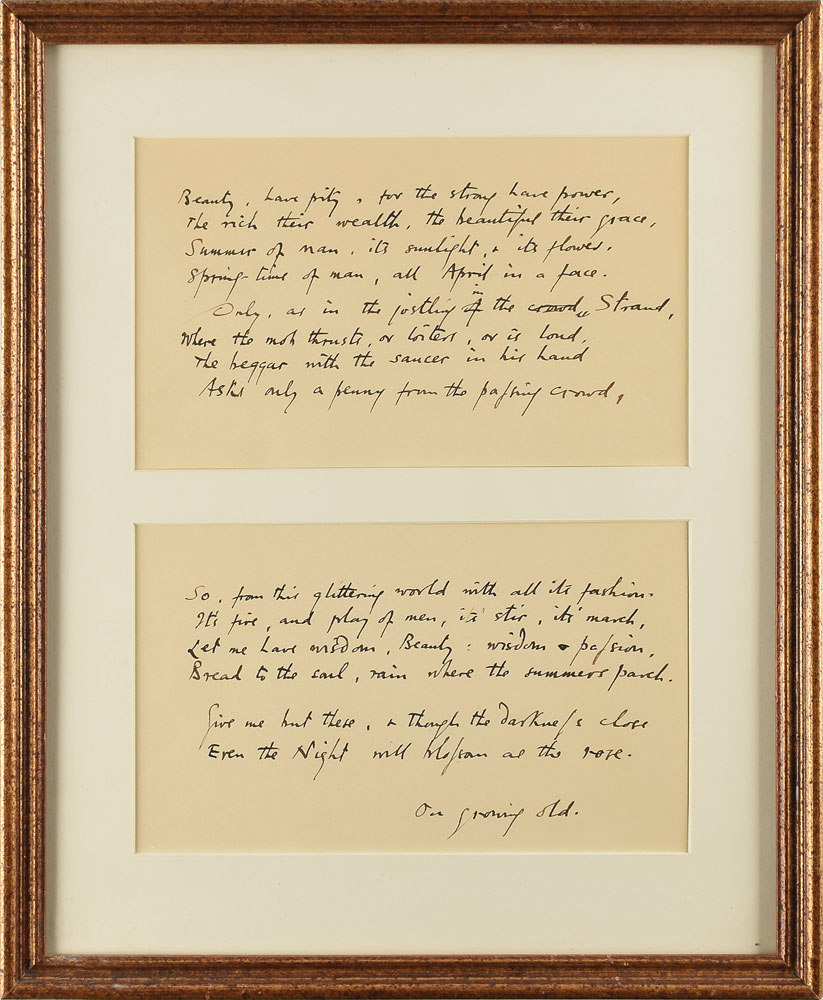 Beauty, have pity, for the strong have power,
The rich their wealth, the beautiful their grace,
Summer of man, its sunlight, & its flower.
Spring-time of man, all April in a face.
Only, as in the jostling in the crowd Strand,
Where the mob thrusts, or loiters, or is loud,
The beggar with the saucer in his hand
Asks only a penny from the passing crowd,
So, from this glittering world with all its fashion.
Its fire, and play of men, its stir, its march,
Let me have wisdom, Beauty: wisdom & passion,
Bread to the soul, rain where the summers parch.
Give me but these, & though the darkness close
Even the Night will blossom as the rose.
On growing old.